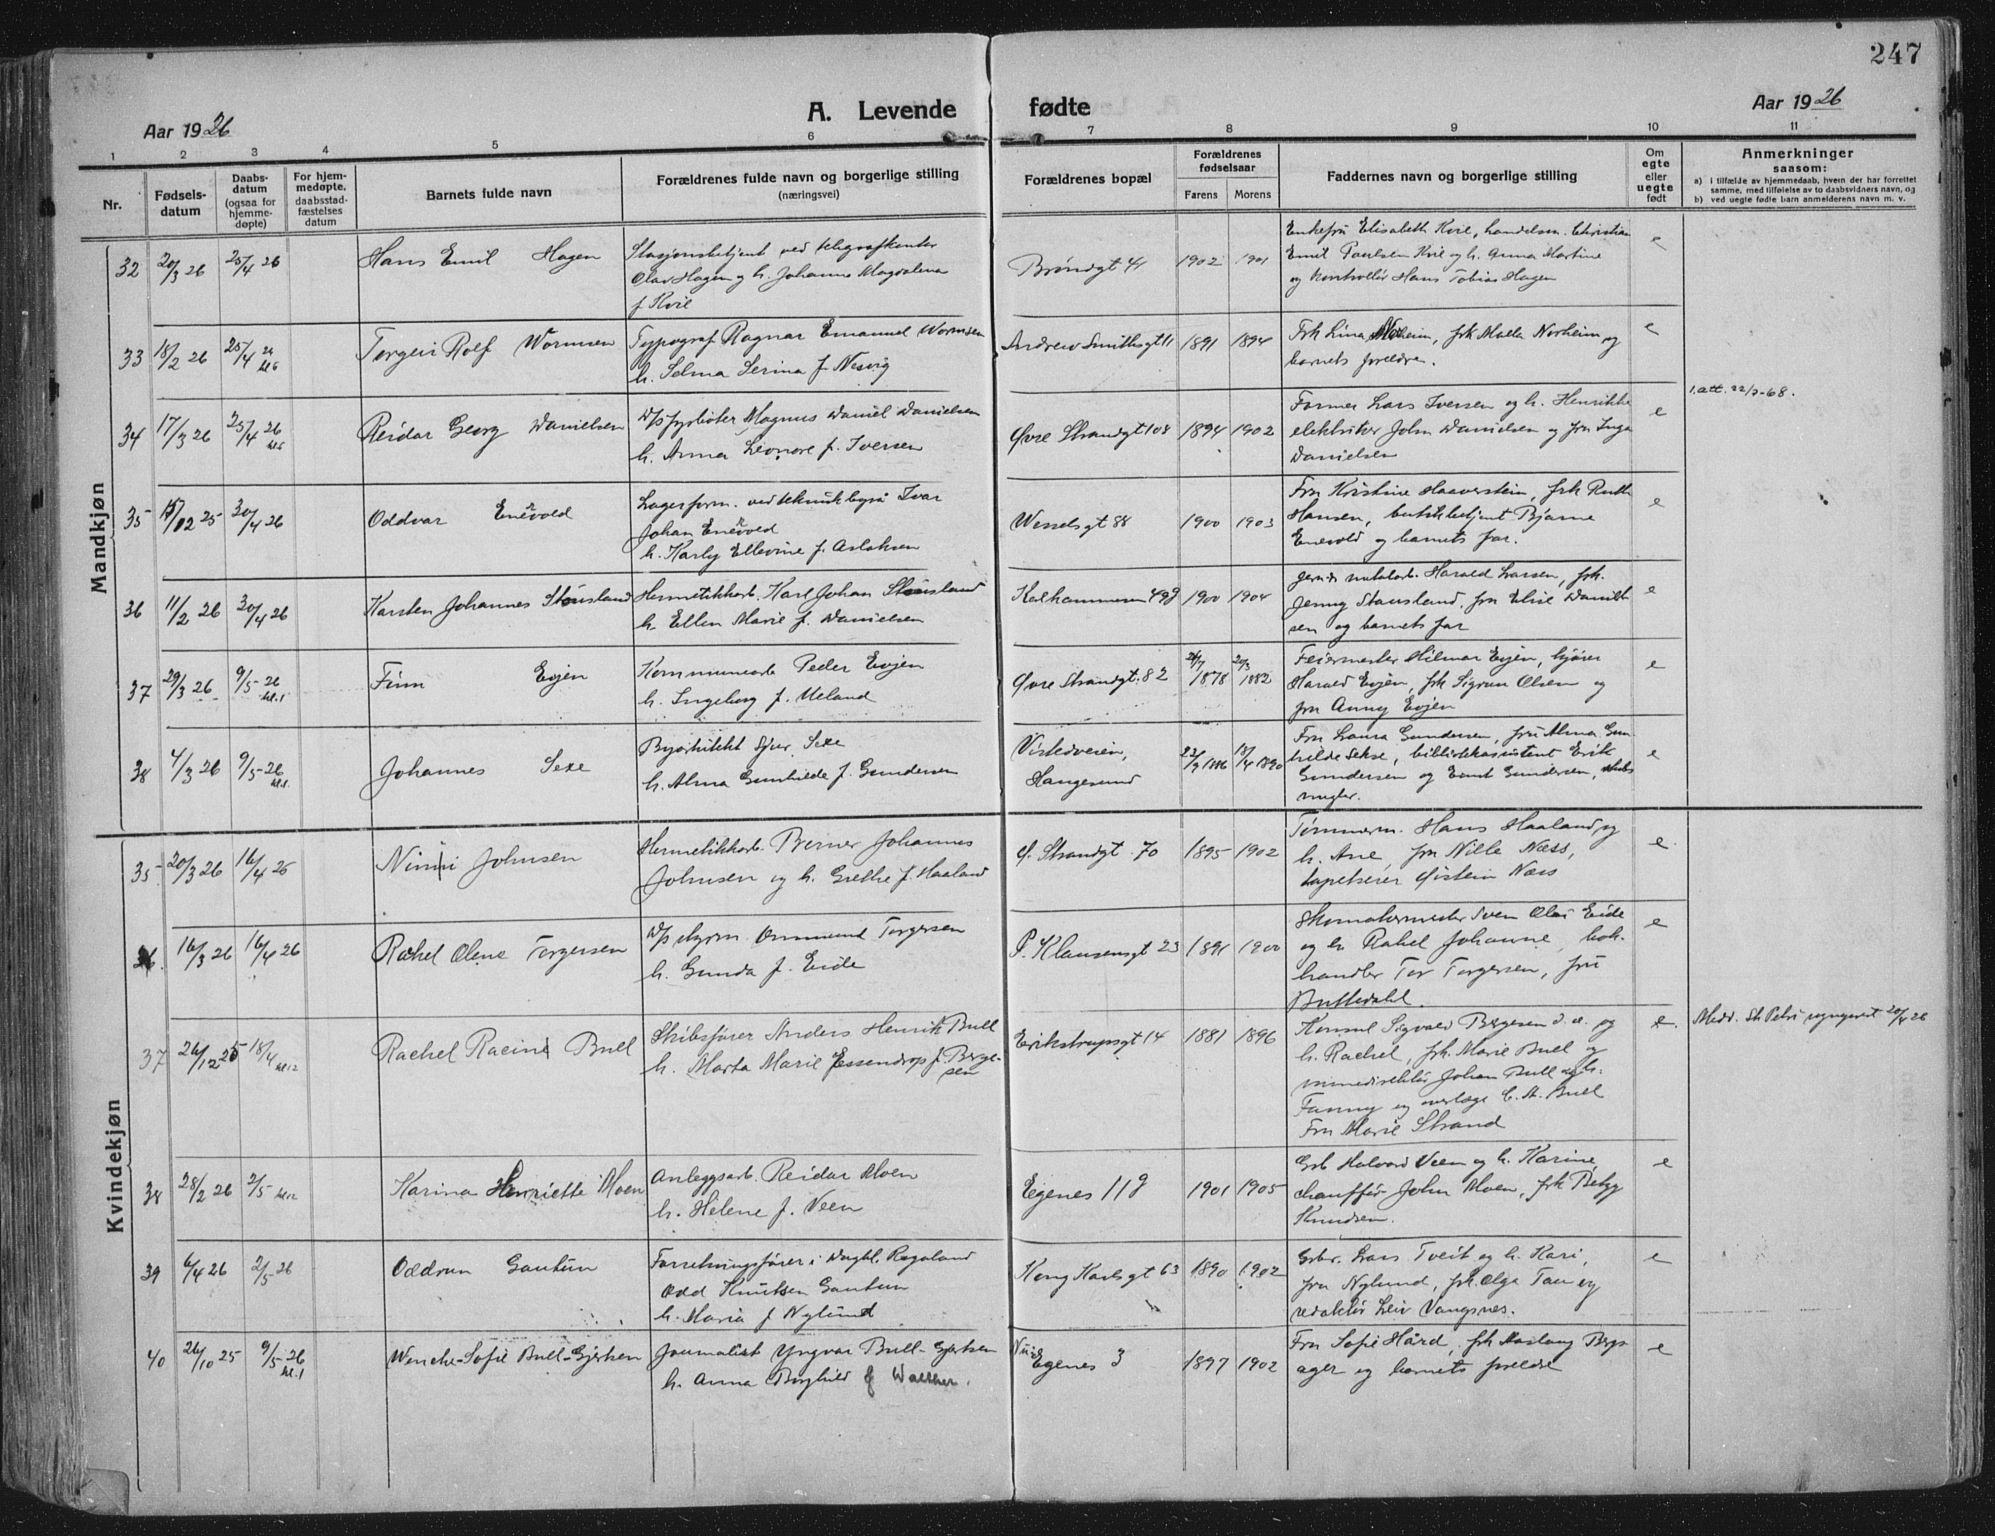 247
A. Levende fødte
Aar 1926
Aar 1926
1 2 3 4 5 6 7 8 9 10 11
Nr.
Fødsels-
datum
Daabs-
datum
(ogsaa for
hjemme-
døpte)
For hjem-
medøpte,
daabsstad-
fæstelses
datum
Barnets fulde navn
Forældrenes fulde navn og borgerlige stilling
(næringsvei)
Forældrenes bopæl
Forældrenes
fødselsaar
Farens Morens
Faddernes navn og borgerlige stilling
Om
egte
eller
uegte
født
Anmerkninger
saasom:
a) i tilfælde av hjemmedaab, hvem der har forrettet
samme, med tilføielse av to daabsvidners navn, og
b) ved uegte fødte barn anmelderens navn m. v.
Mandkjøn
32 20/3 26 25/4 26 Hans Emil Hagen
Stasjonsbetjent ved telegrafkontor
Olav Hagen og h. Johanne Magdalena
f. Kvie
Brøndgt 41 1902 1901
Enkefru Elisabeth Kvie, handelsm. Christian
Emil Paulsen Kvie og h. Anna Martine
og kontrollør Hans Tobias Hagen
e
33 18/2 26 25/4 26 kl 6 Torgeir Rolf Wormsen
Typograf Ragnar Emanuel Wormsen
h. Selma Serina f. Nesvig
Andrew Smithsgt 11 1891 1894
Frk Lina Norheim, frk Malla Norheim og
barnets forældre.
e
34 17/3 26 25/4 26 kl 6 Reidar Georg Danielsen
D/S fyrbøter Magnus Daniel Danielsen
h. Anna Leonore f. Iversen
Øvre Strandgt 108 1894 1902
Former Lars Iversen og h. Henrikke
elektriker John Danielsen og fru Inga
Danielsen
e
1. att. 22/3-68.
35 15/12 25 30/4 26 Oddvar Enevold
Lagerform. ved teknisk byrå Ivar
Johan Enevold
h. Karly Ellevine f. Aslaksen
Wesselsgt 88 1900 1903
Fru Kristine Haaverstein, frk Ruth
Hansen, butikkbetjent Bjarne
Enevold og barnets far.
e
36 11/2 26 30/4 26 Karsten Johannes Stousland
Hermetikkarb. Karl Johan Stousland
h. Ellen Marie f. Danielsen
Kalhammeren 49g 1900 1904
Harald Larsen, frk.
Jenny Stausland, fru Elise Daniel-
sen og barnets far
e
37 29/3 26 9/5-26 kl. 1 Finn Evjen
Kommunearb Peder Evjen
h. Ingeborg f. Ueland
Øvre Strandgt. 82 1878 20/3 1882
Feiermester Hilmar Evjen, kjører
Harald Evjen, frk Sigrun Olsen og
fru Anny Evjen
e
38 4/3 26 9/5-26 kl. 1. Johannes Sexe
Byarkitekt Sjur Sexe
h. Alma Gunhilde f. Gundersen
Vistedveien,
Haugesund
1886 18/4 1890
Fru Laura Gundersen, fru Alma Gun-
hilde Sekse, bibliotekassistent Erik
Gundersen og Gundersen, skibs-
megler.
e
Kvindekjøn
35 20/3 26 16/4 26 Ninni Johnsen
Hermetikkarb. Berner Johannes
Johnsen og h. Grethe f. Haaland
Ø. Strandgt. 70 1895 1902
Tømmerm. Hans Haaland og
h. Ane, fru Nille Næss,
tapetserer Øistein Næss
e.
36. 16/3 26 16/4 26 Rakel Olene Torgersen
D/S styrm. Ommund Torgersen
h. Gunda f. Eide
P. Klausensgt 23 1891 1900
Skomakermester Sven Olai Eide
og h. Rakel Johanne, bok-
handler Tor Torgersen, fru
e
37 26/12 25 18/4 kl 12 Rachel Racine Bull
Skibsfører Anders Henrik Bull
h. Marta Marie Essendrop f. Berge-
sen
Erikstrupsgt 14 1881 1896
Konsul Sigvald Bergesen d. e. og
h. Rachel, frk. Marie Bull og
minedirektør Johan Bull og h.
Fanny og overlæge C. A. Bull
Fru Marie Strand
e.
Medd. St. Petri 20/4 26
38 28/2 26 2/5 kl 12 Karina Henriette Moen
Anleggsarb. Reidar Moen
h. Helene f. Veen
Egenes 11g 1901 1905
Grb Halvard Veen og h. Karine,
chauffør John Moen, frk Betzy
Knudsen.
e
39 6/4 26 2/5-26 Oddrun Gautun
Forretningsfører i Dagbl. Rogaland
Odd Knutsen Gautun
h. Maria f. Nylund
Kong Karlsgt 63 1890 1902
Grbr. Lars Tveit og h. Kari,
fru Nylund, frk. Olga Tau og
redaktør Leiv Vangsnes.
e
40 26/10 25 9/5-26 kl. 1 Wenche-Sofie Bull-Gjertsen
Journalist Yngvar Bull-Gjertsen
h. Anna Borghild f Walther.
Egenes 3 1897 1902
Fru Sofie Hård, frk Aaslaug Berg-
ager og barnets forældre
e